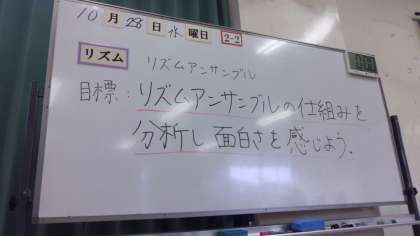 10月28日水曜日 2-2
リズム リズムアンサンブル
目標：リズムアンサンブルの仕組みを
分析し面白さを感じよう。